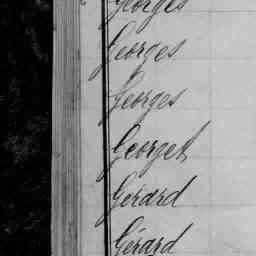 Georges
Georges
Georges
Georget
Gerard
Gérard